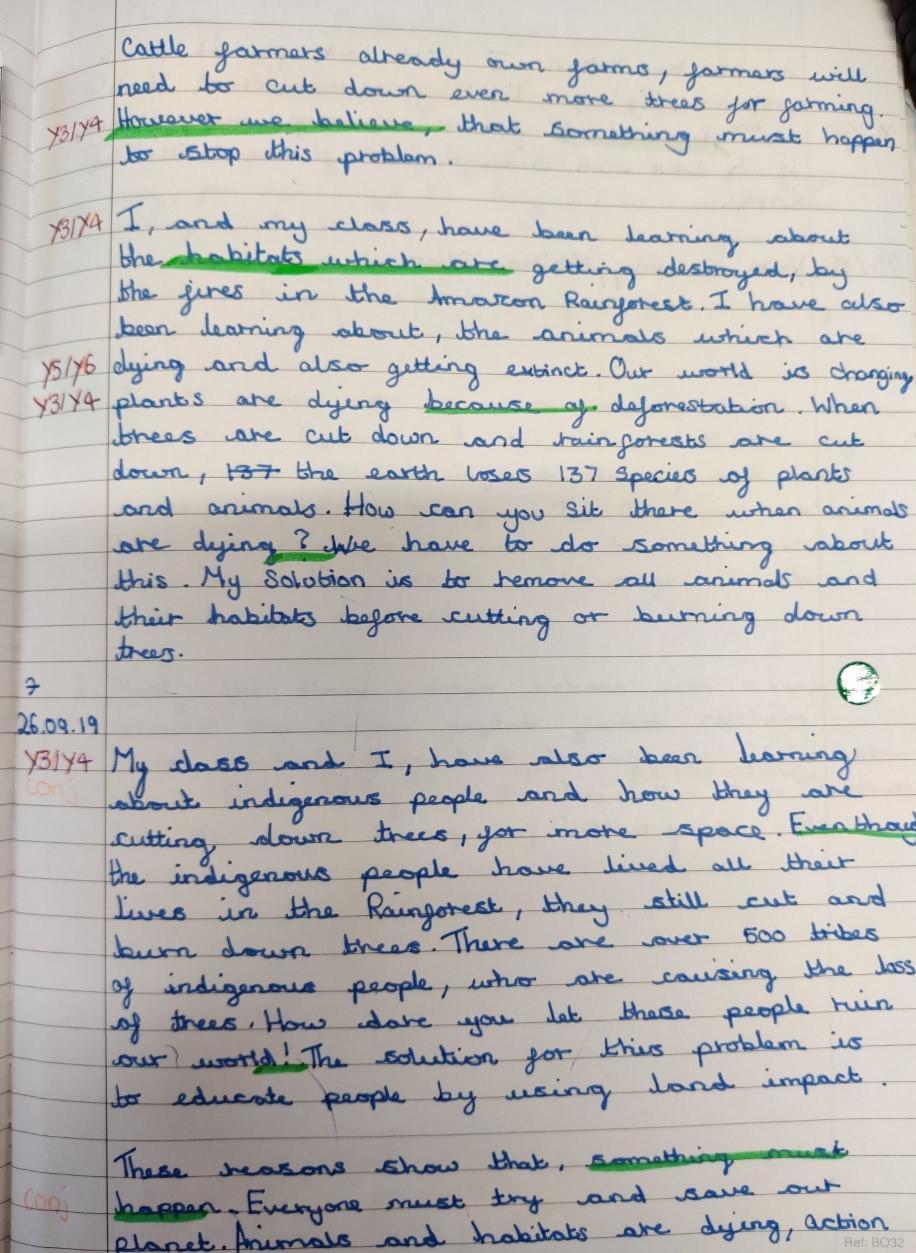 Cattle farmers already own farms, farmers will
need to cut down even more trees for farming.
Y3/Y4 However we believe, that something must happen
to stop this problem.
Y3/Y4 I, and my class, have been learning about
the habitats which are getting destroyed, by
the fires in the Amazon Rainforest. I have also
been learning about, the animals which are
Y5/Y6 dying and also getting extinct. Our world is changing,
Y3/Y4 plants are dying because of deforestation. When
trees are cut down and rainforests are cut
down, 137 the earth loses 137 species of plants
and animals. How can you sit there when animals
are dying? We have to do something about
this. My Solotion is to remove all animals and
their habitats before cutting or burning down
trees.
7
26.09.19
Y3/Y4 My class and I, have also been learning
conj about indigenous people and how they are
cutting down trees, for more space. Even thoug
the indigenous people have lived all their
lives in the Rainforest, they still cut and
burn down trees. There are over 500 tribes
of indigenous people, who are causing the loss
of trees. How dare you let these people ruin
our world! The solution for this problem is
to educate people by using land impact.
These reasons show that, something must
conj happen. Everyone must try and save our
planet. Animals and habitats are dying, action
Ref: BO32